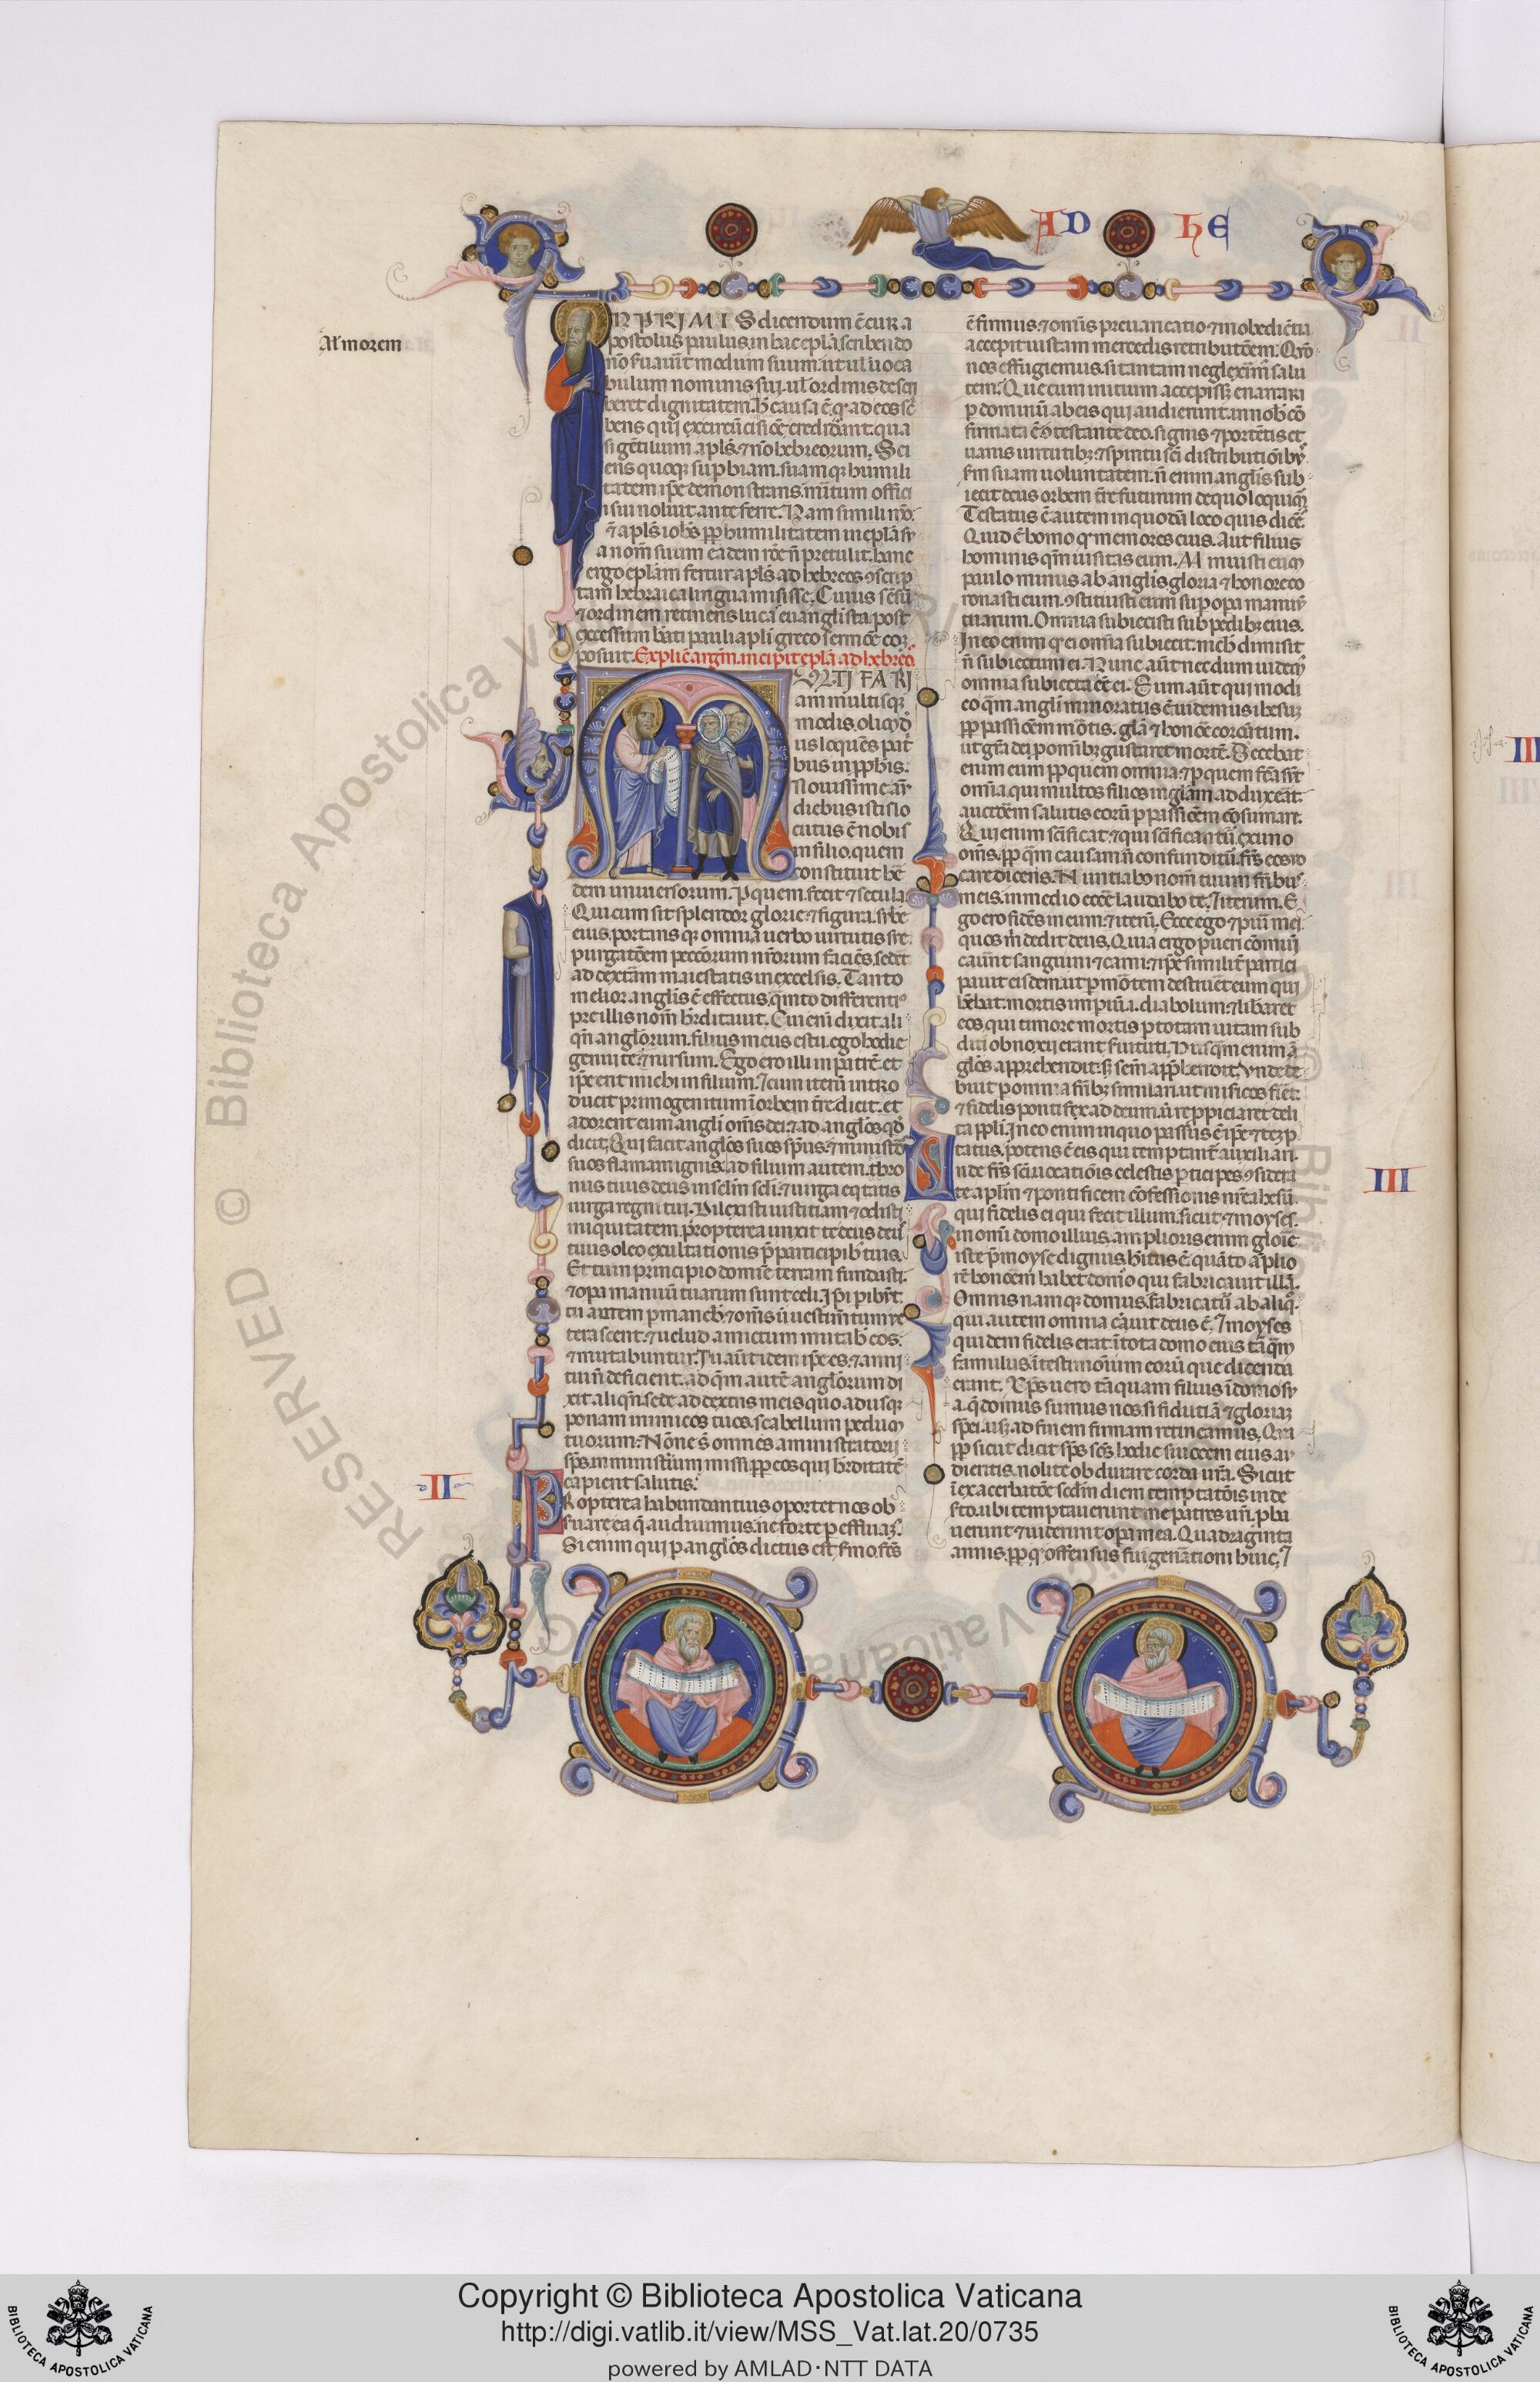 AD HE
Al' morem
N PRIMIS dicendum ē cur a
postolus paulus in hac epl'a scribendo
nō fuauit modum suum. ut ul' uoca
bulum nominis sui. ul' ordinis descͥ
beret dignitatem. h̄ causa ē. qꝫ ad eos sc̄
bens qui ex circūcisiōe crediderant. qua
si gētilium apl's. ⁊ nō hebreorum. Sci
ens quoqꝫ supbiam. suamqꝫ humili
tatem ip̄e demonstrans. m̄itum offici
i sui noluit anteferre. Nam simili mō.
⁊ apl's ioh̄s pp humilitatem in epl'a sy
a nom̄ suum eadem rōe n̄ pretulit. hanc
ergo epl'am fertur apl's ad hebreos ꝯscrip
tam hebraica lingua misisse. Cuius sēsū
⁊ ordinem retinens lucā euangl'ista post
excessum b̄ati pauli apl'i greco sermōe cōp
posuit. Explic̄ argm̄. incipit epl'a. ad hebreos
MULTIFARI
am multisqꝫ
modis. olim dꝰ
us loquēs pat
bus in pph̄is.
Nouissime aūt
diebus istis lo
cutus ē nobis
in filio. quem
constituit h̄e
dem uniuersorum. p quem fecit ⁊ secula.
Qui cum sit splendor glorie ⁊ figura. sb̄e
eius. portans qꝫ omnia uerbo uirtutis sue.
purgatōem peccōrum nr̄orum faciēs. sedet
ad dext̄am maiestatis in excelsis. Tanto
melior angl'is ē effectus. qͣnto differentiꝰ
pre illis nom̄ h̄editauit. Cui eni dixit ali
qn̄ angl'orum. filius meus es tu. ego hodie
genui te. ⁊ rursum. Ego ero illi in patrē. et
ip̄e erit michi in filium. ⁊ cum iterū intro
ducit primogenitum ī orbem t̄re dicit. et
adorent eum angl'i om̄s dei. ⁊ ad angl'os qͥdē
dicit. Qui facit angl'os suos sp̄us. ⁊ ministros
suos flamam ignis. ad filium autem. thro
nus tuus deus in sc̄lm sc̄li. ⁊ uirga eqͥtatis
uirga regni tui. Dilexisti iustitiam ⁊ odisti
iniquitatem. propterea unxit te deus deꝰ
tuus oleo exultationis p̄ participibꝫ tuis.
Et tu in principio domīe terram fundasti.
⁊ opa manuū tuarum sunt celi. Ip̄i pibūt.
tu autem pmanebꝭ. ⁊ om̄s ut uestim̄tum ue
terascent. ⁊ uelud amictum mutabꝭ eos.
⁊ mutabuntur. Tu aūt idem ip̄e es. ⁊ anni
tui n̄ deficient. ad qͣm autē angl'orum di
xit aliqn̄. sede ad dextris meis quo adusqꝫ
ponam inimicos tuos. scabellum pedum
tuorum. Nōne ōmnes aministratorii
sp̄s. in ministīum missi. pp eos qui h̄editatē
capient salutis.
II
Propterea habundantius oportet nos ob
fuare ea q̄ audiuimus. ne forte p effluaꝰ.
Si enim qui p angl'os dictus est sermo. fc̄s
ē firmus. ⁊ omnis preuaricatio. ⁊ inobediētia
accepit iustam mercedis retributōem. Qͦmō
nos effugiemus. si tantam neglexim̄ salu
tem. Que cum initium accepisꝫ enarrari
p dominū ab eis qui audierunt. in nobꝭ cō
firmata ē. ꝯtestante deo. signis ⁊ portētis et
uariis uirtutibꝫ. ⁊ spiritu sc̄i distributiōibꝫ.
sm̄ suam uoluntatem. n̄ enim angl'is sub
iecit deus orbem t̄re futurum de quo loquimꝰ
Testatus ē autem in quodā loco quis dicēs
Quid ē homo qꝫ memor es eius. Aut filius
hominis qm̄ uisitas eum. Minuisti eum
paulo minus ab angl'is gloria ⁊ honore co
ronasti eum. ꝯstituisti eum sup opa manuū
tuarum. Omnia subiecisti sub pedibꝫ eius.
In eo enim qꝫ ei omnīa subiecit. nich dimisit
n̄ subiectum ei. Nunc aūt necdum uidemꝰ
omnia subiecta ēe ei. Eum aūt qui modi
co qͣm angl'i minoratus ē uidemus ihesuꝫ
pp passiōem mōtis. gl'a ⁊ honōe corōatum.
ut gr̄a dei p omnibꝫ gustaret mortē. Decebat
enim eum pp quem omnia. ⁊ p quem fc̄a sūt
om̄ia. qui multos filios in gl'am. adduxeāt.
auctōem salutis eorū p passiōem cōsumari.
Qui enim sc̄ificat. ⁊ qui sc̄ificantur. ex uno
om̄s. pp qͣm causam n̄ confunditur. frēs eos uo
care dicens. Nuntiabo nom̄ tuum fr̄ibus
meis. in medio ecc̄e laudabo te. Iterum. E
go ero fidēs in eum. ⁊ iterū. Ecce ego ⁊ puī mei
quos m̄ dedit deus. Quia ergo pueri cōmuni
cauūt sanguini ⁊ carni. ⁊ ip̄e similit̄ partici
pauit eisdem. ut p mōtem destruēt eum qui
h̄ebat mortis impium. i. diabolum. ⁊ lib̄aret
eos. qui timore mortis p totam uitam sub
diti obnoxii erant suituti. Nusqͣm enim ā
gl'os apprehendit. sꝫ sem̄ appͬhendit. Vnde de
buit p omnia fr̄ibꝫ similari. ut mis'icos fiēt
⁊ fidelis pontifex ad deum. ut reppiciaret deli
ta ppl'i. In eo enim in quo passus ē ip̄e ⁊ teꝫp
tatus. potens ē eis qui temptant̄ auxiliari.
III
Vnde frēs sc̄i uocatiōis celestis p̄ticipes ꝯsidera
te apl'm ⁊ pontificem cōfessionis nr̄e ihesū.
qui fidelis ei qui fecit illum. sicut ⁊ moyses.
in omī domo illius. amplioris enim glorie
iste p̄ moyse dignus h̄itus ē. quāto āplio
rē honōem habet domꝰ qui fabricauit illā.
Omnis nam qꝫ domus. fabricatur ab aliqͦ.
qui autem omnia creauit deus ē. ⁊ moyses
quidem fidelis erat. ī tota domo eius tāqͣm
famulus ī testimoīum eorū que dicenda
erant. Xp̄s uero tāquam filius ī domo sy
a. qͣ domus sumus nos. si fidutiā ⁊ gloriaꝫ
sp̄ei usqꝫ ad finem firmam retineamus. Qͣꝓ
pp sicut dicit sp̄s sc̄s. hodie si uocem eius au
dieritis. nolite obdurare corda ur̄a. Sicut
ī exacerbatōe sc̄dm diem temptatōis in de
sto. ubi temptauerunt me patres ur̄i. pba
uerunt ⁊ uiderunt opa mea. Quadraginta
annis. pp qͦ offensus fui gen̄ationi huic. ⁊
© Biblioteca Apostolica Vaticana
RESERVED
Copyright © Biblioteca Apostolica Vaticana
http://digi.vatlib.it/view/MSS_Vat.lat.20/0735
powered by AMLAD·NTT DATA
BIBLIOTECA APOSTOLICA VATICANA
BIBLIOTECA APOSTOLICA VATICANA